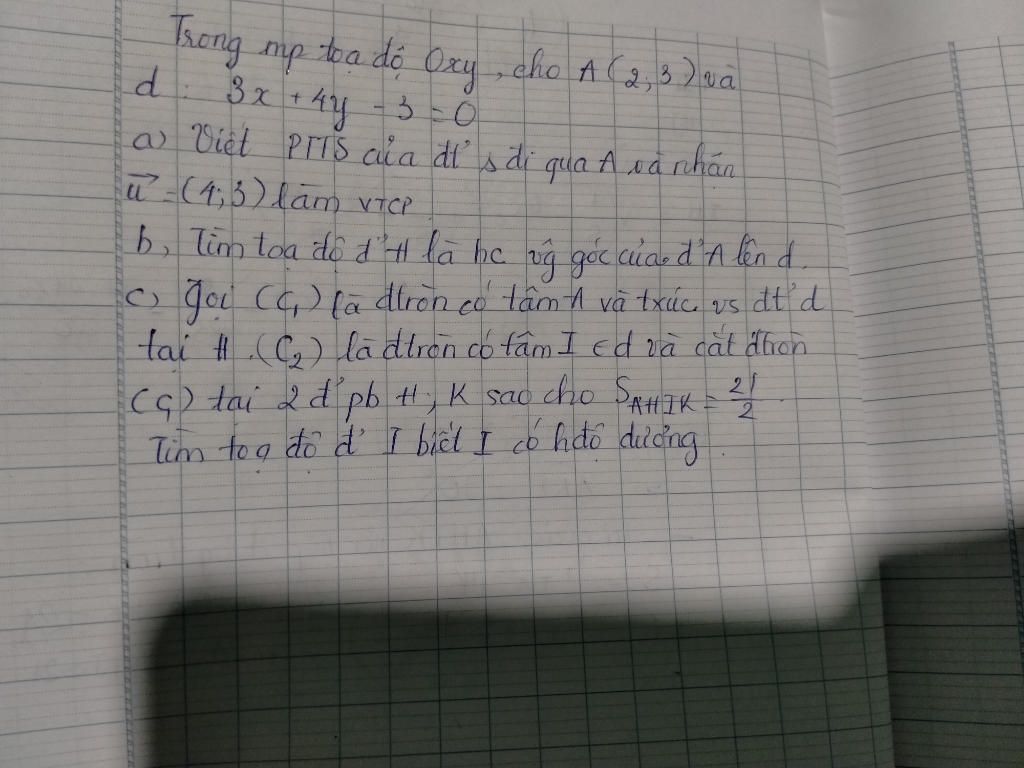 Trong mp toạ độ Oxy, cho A(2;3) và
d: 3x + 4y - 3 = 0
a) Viết PTTS của đt' Δ đi qua A và nhân
u⃗ = (4;3) làm VTCP
b, Tìm toạ độ đ' H là hc vg góc của đ' A lên d.
c) gọi (C₁) là đtròn có tâm A và txúc vs đt' d
tại H. (C₂) là đtròn có tâm I ∈ d và cắt đtròn
(C₁) tại 2 đ' pb H, K sao cho S_AHIK = 21/2.
Tìm toạ độ đ' I biết I có hđộ dương.